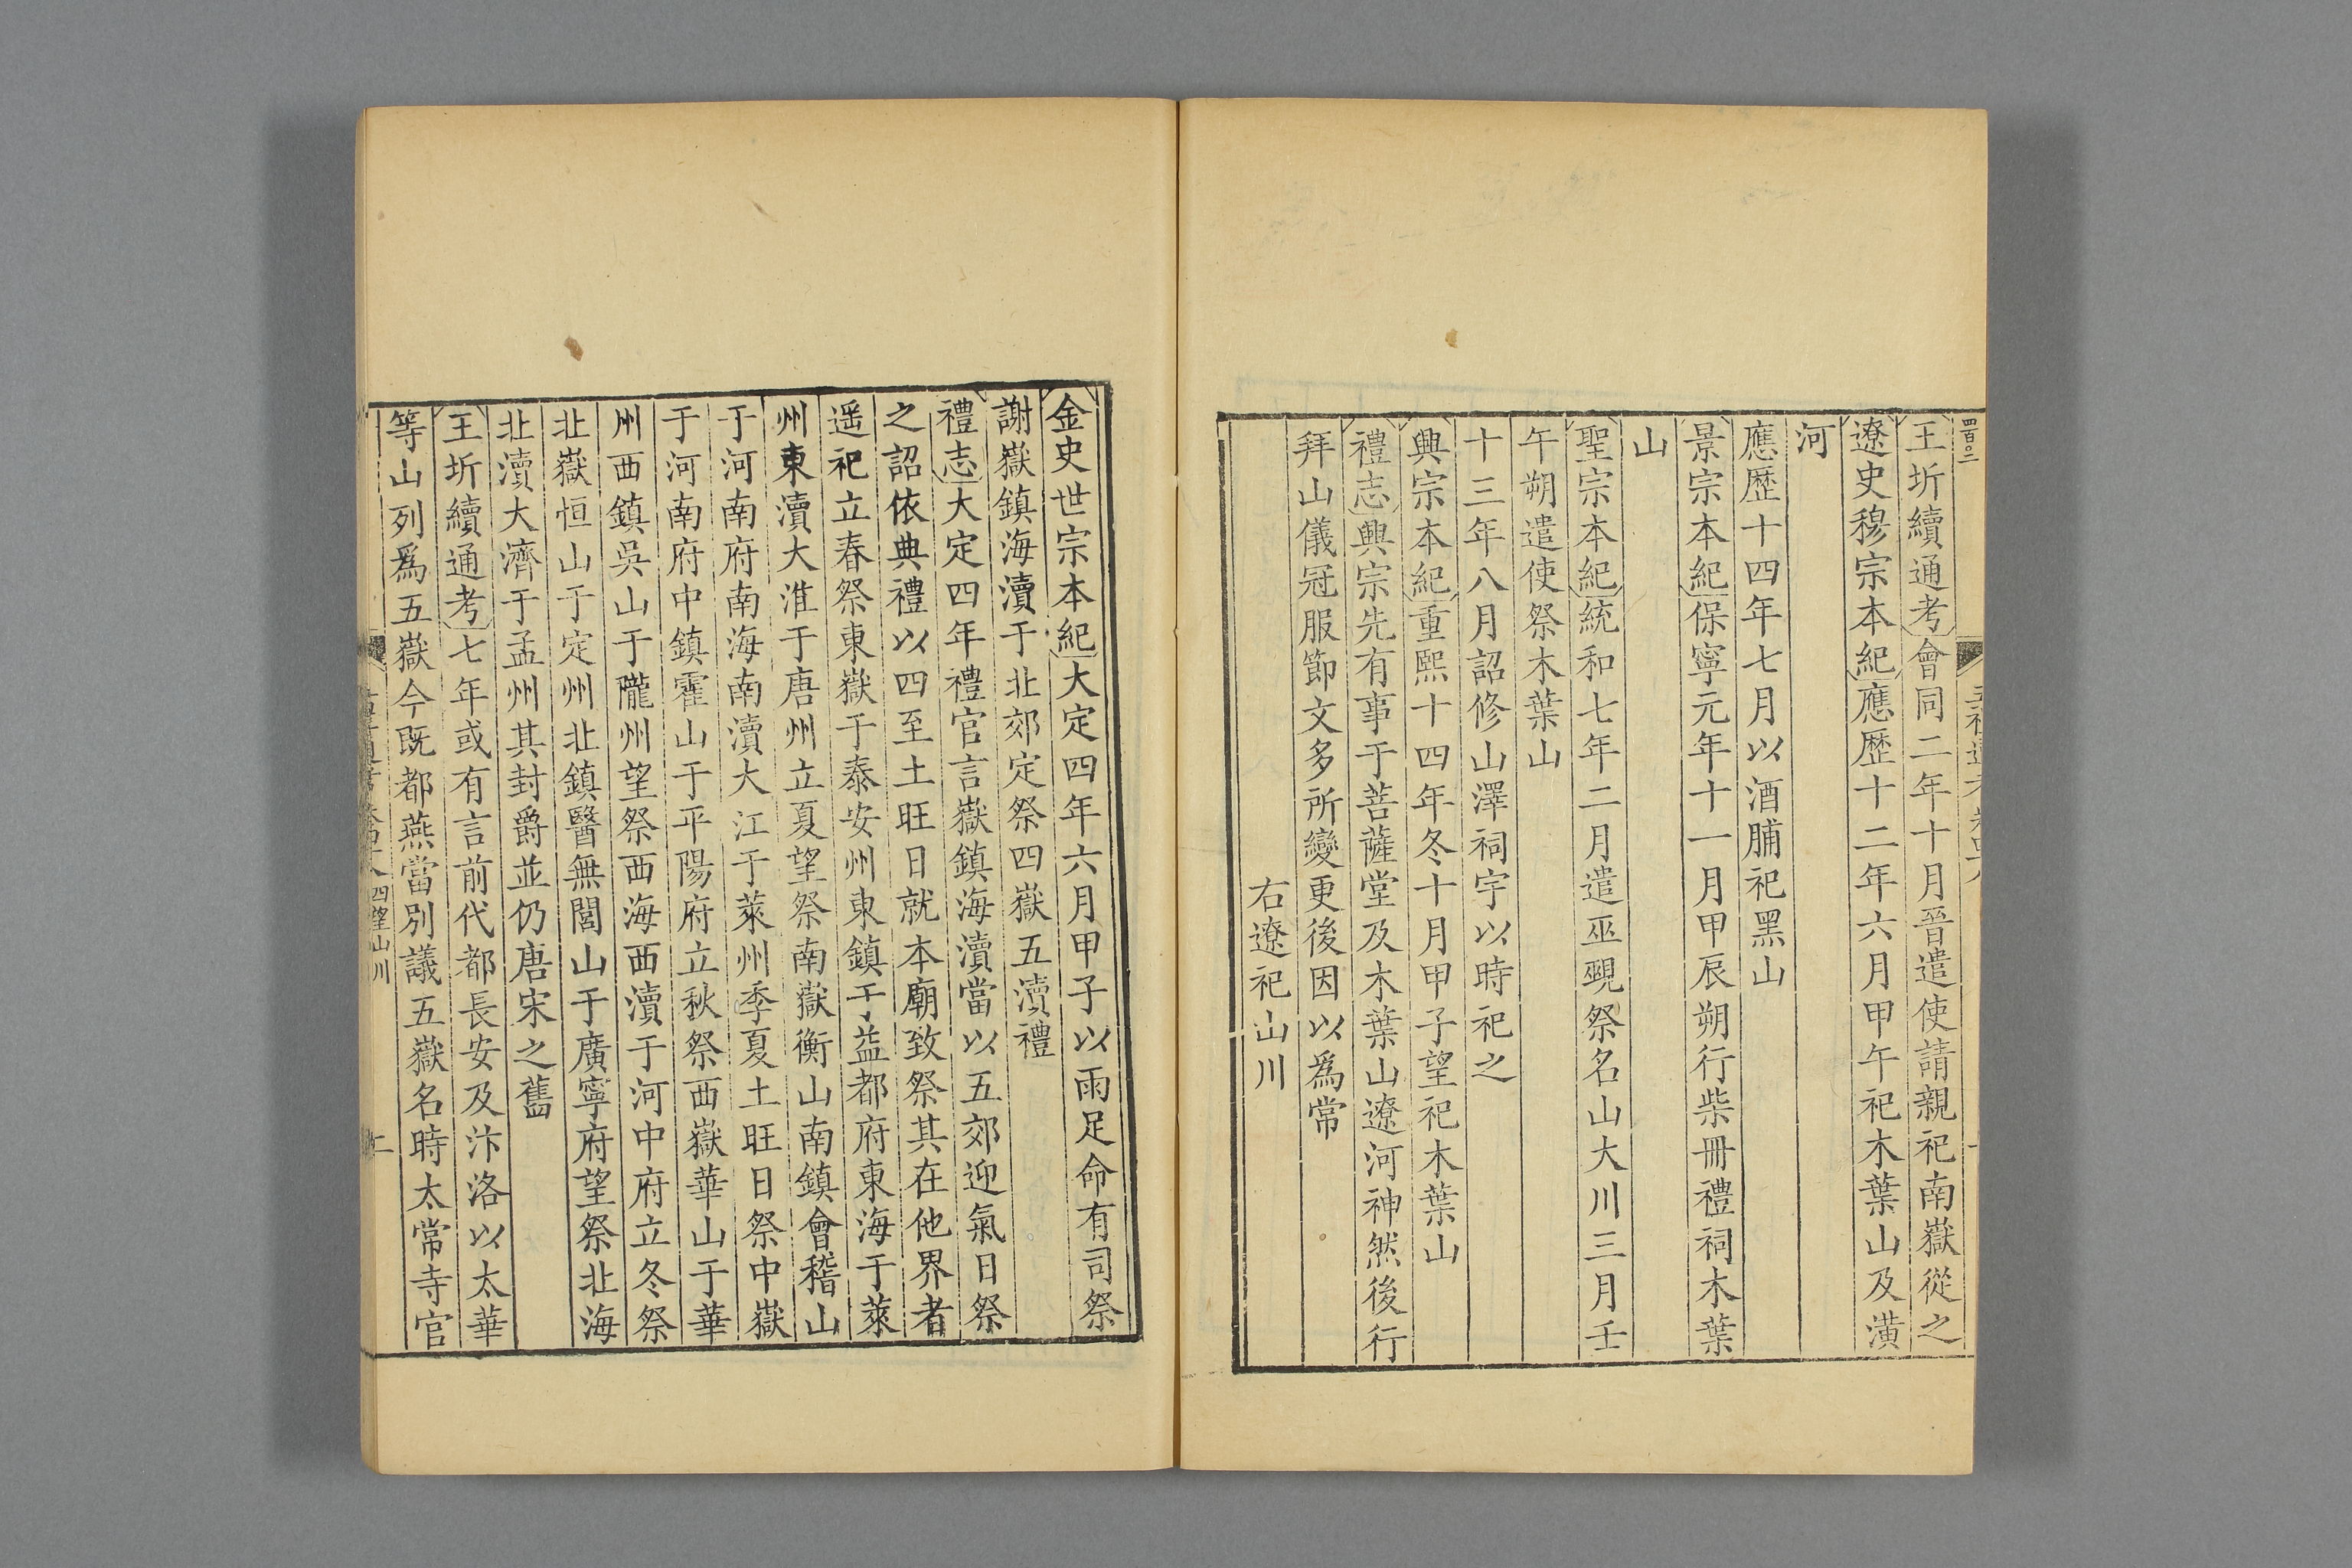 四百〇二
王圻續通考會同二年十月晉遣使請親祀南嶽從之
遼史穆宗本紀應歷十二年六月甲午祀木葉山及潢
河
應歷十四年七月以酒脯祀黑山
景宗本紀保寧元年十一月甲辰朔行柴冊禮祠木葉
山
聖宗本紀統和七年二月遣巫覡祭名山大川三月壬
午朔遣使祭木葉山
十三年八月詔修山澤祠宇以時祀之
興宗本紀重熙十四年冬十月甲子望祀木葉山
禮志興宗先有事于菩薩堂及木葉山遼河神然後行
拜山儀冠服節文多所變更後因以爲常
右遼祀山川
金史世宗本紀大定四年六月甲子以雨足命有司祭
謝嶽鎮海瀆于北郊定祭四嶽五瀆禮
禮志大定四年禮官言嶽鎮海瀆當以五郊迎氣日祭
之詔依典禮以四至土旺日就本廟致祭其在他界者
遥祀立春祭東嶽于泰安州東鎮于益都府東海于萊
州東瀆大淮于唐州立夏望祭南嶽衡山南鎮會稽山
于河南府南海南瀆大江于萊州季夏土旺日祭中嶽
于河南府中鎮霍山于平陽府立秋祭西嶽華山于華
州西鎮吳山于隴州望祭西海西瀆于河中府立冬祭
北嶽恒山于定州北鎮醫無閭山于廣寧府望祭北海
北瀆大濟于孟州其封爵並仍唐宋之舊
王圻續通考七年或有言前代都長安及汴洛以太華
等山列爲五嶽今既都燕當別議五嶽名時太常寺官
四望山川